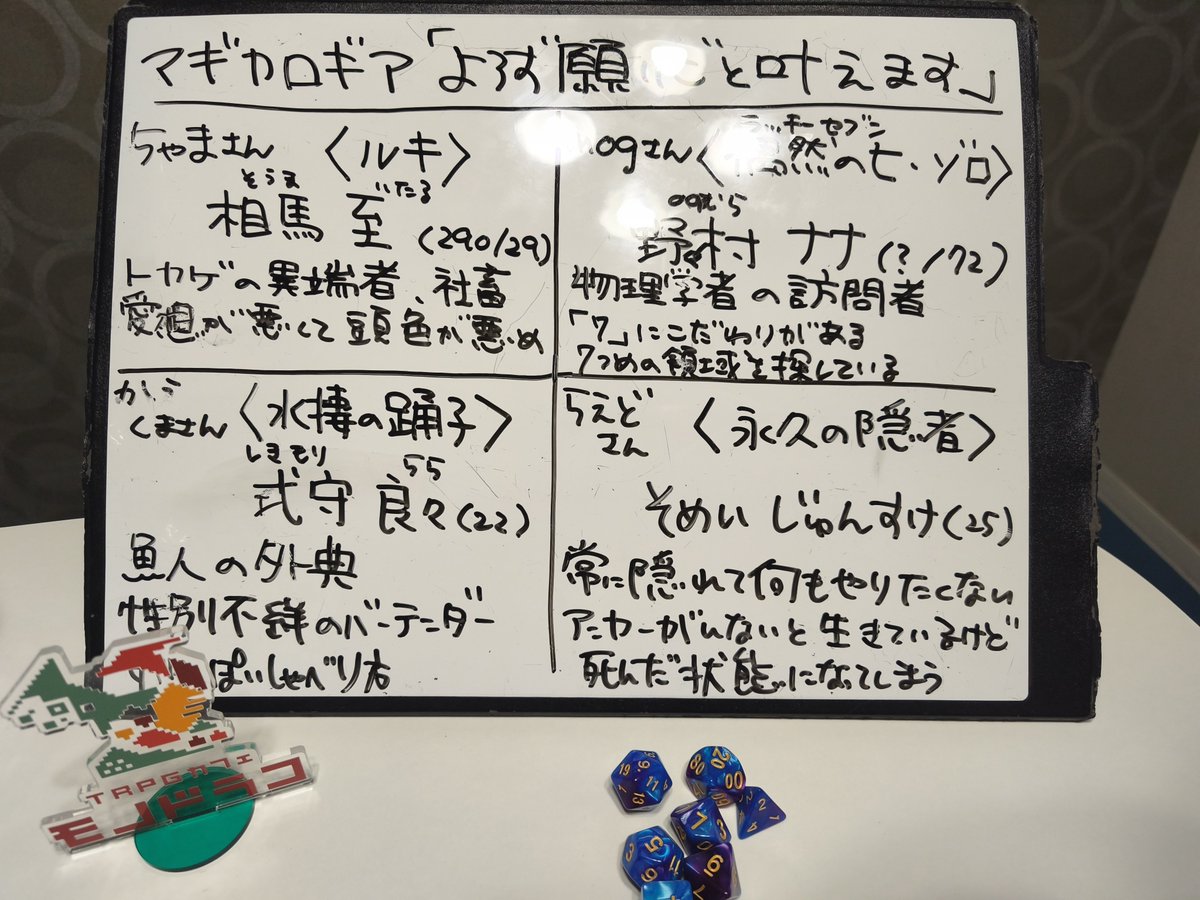 マギカロギア「よろず願いごと叶えます」
ちゃまさん 〈ルキ〉
そうま いたる
相馬 至 (290/29)
トカゲの異端者、社畜
愛想が悪くて顔色が悪め
nogさん
ラッキーセブン
〈偶然の七・ゾロ〉
のむら
野村 ナナ (?/72)
物理学者の訪問者
「7」にこだわりがある
7つめの領域を探している
くまさん 〈水棲の踊子〉
しきもり らら
式守 良々 (22)
魚人の外典
性別不詳のバーテンダー
ぽいしゃべり方
らえどさん 〈永久の隠者〉
そめい じゅんすけ (25)
常に隠れて何もやりたくない
アンカーがいないと生きているけど
死んだ状態になってしまう
TRPGカフェ
モノドラコ
19 9 11 13 1
80 20 00 60
2 4 1
7 3
3 5 11 9
9 7